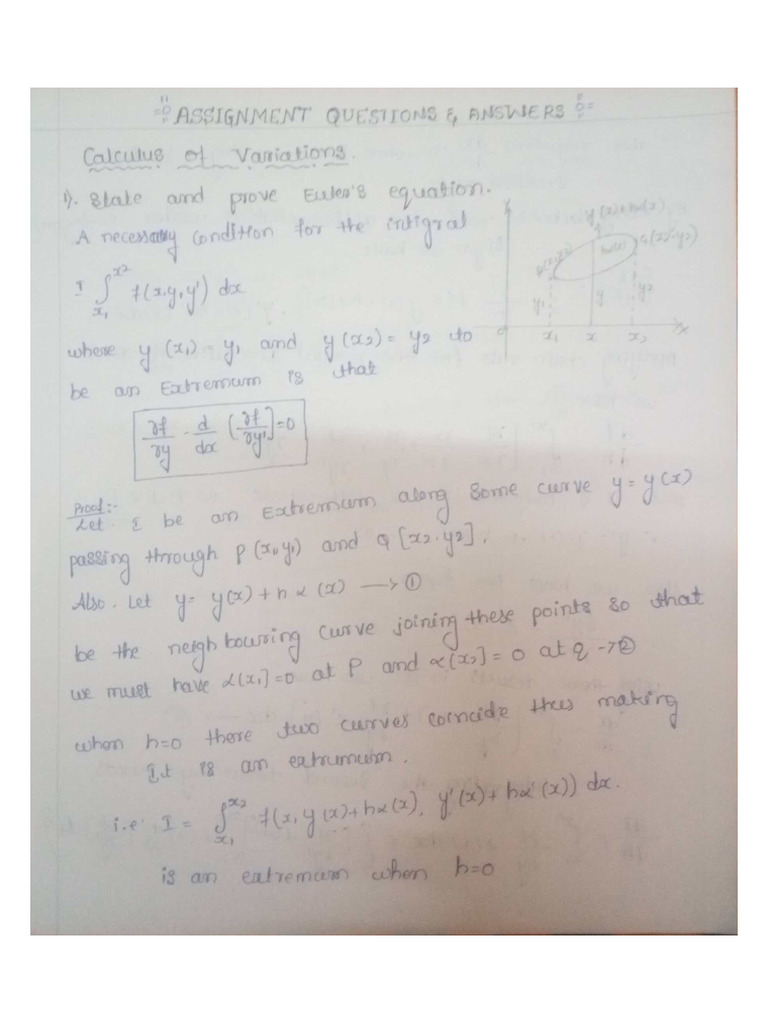 ASSIGNMENT QUESTIONS & ANSWERS
Calculus of Variations.
1). State and prove Euler's equation.
A necessary condition for the intigral
I ∫_{x1}^{x2} f(x,y,y') dx
where y(x1) = y1 and y(x2) = y2 to
be an Extremum is that
∂f/∂y - d/dx (∂f/∂y'] = 0
y(x)+hα(x)
Q(x2,y2)
P(x1,y1)
hα(x)
y1 y y2
0 x1 x x2 X
Proof:-
Let I be an Extremum along some curve y = y(x)
passing through P(x1,y1) and Q[x2.y2].
Also. Let y = y(x) + hα(x) → ①
be the neighbouring curve joining these points so that
we must have α(x1] = 0 at P and α(x2] = 0 at Q → ②
when h=0 there two curves coincide thus making
It is an extrumum.
i.e' I = ∫_{x1}^{x2} f(x, y(x)+hα(x), y'(x)+hα'(x)) dx.
is an extremum when h=0